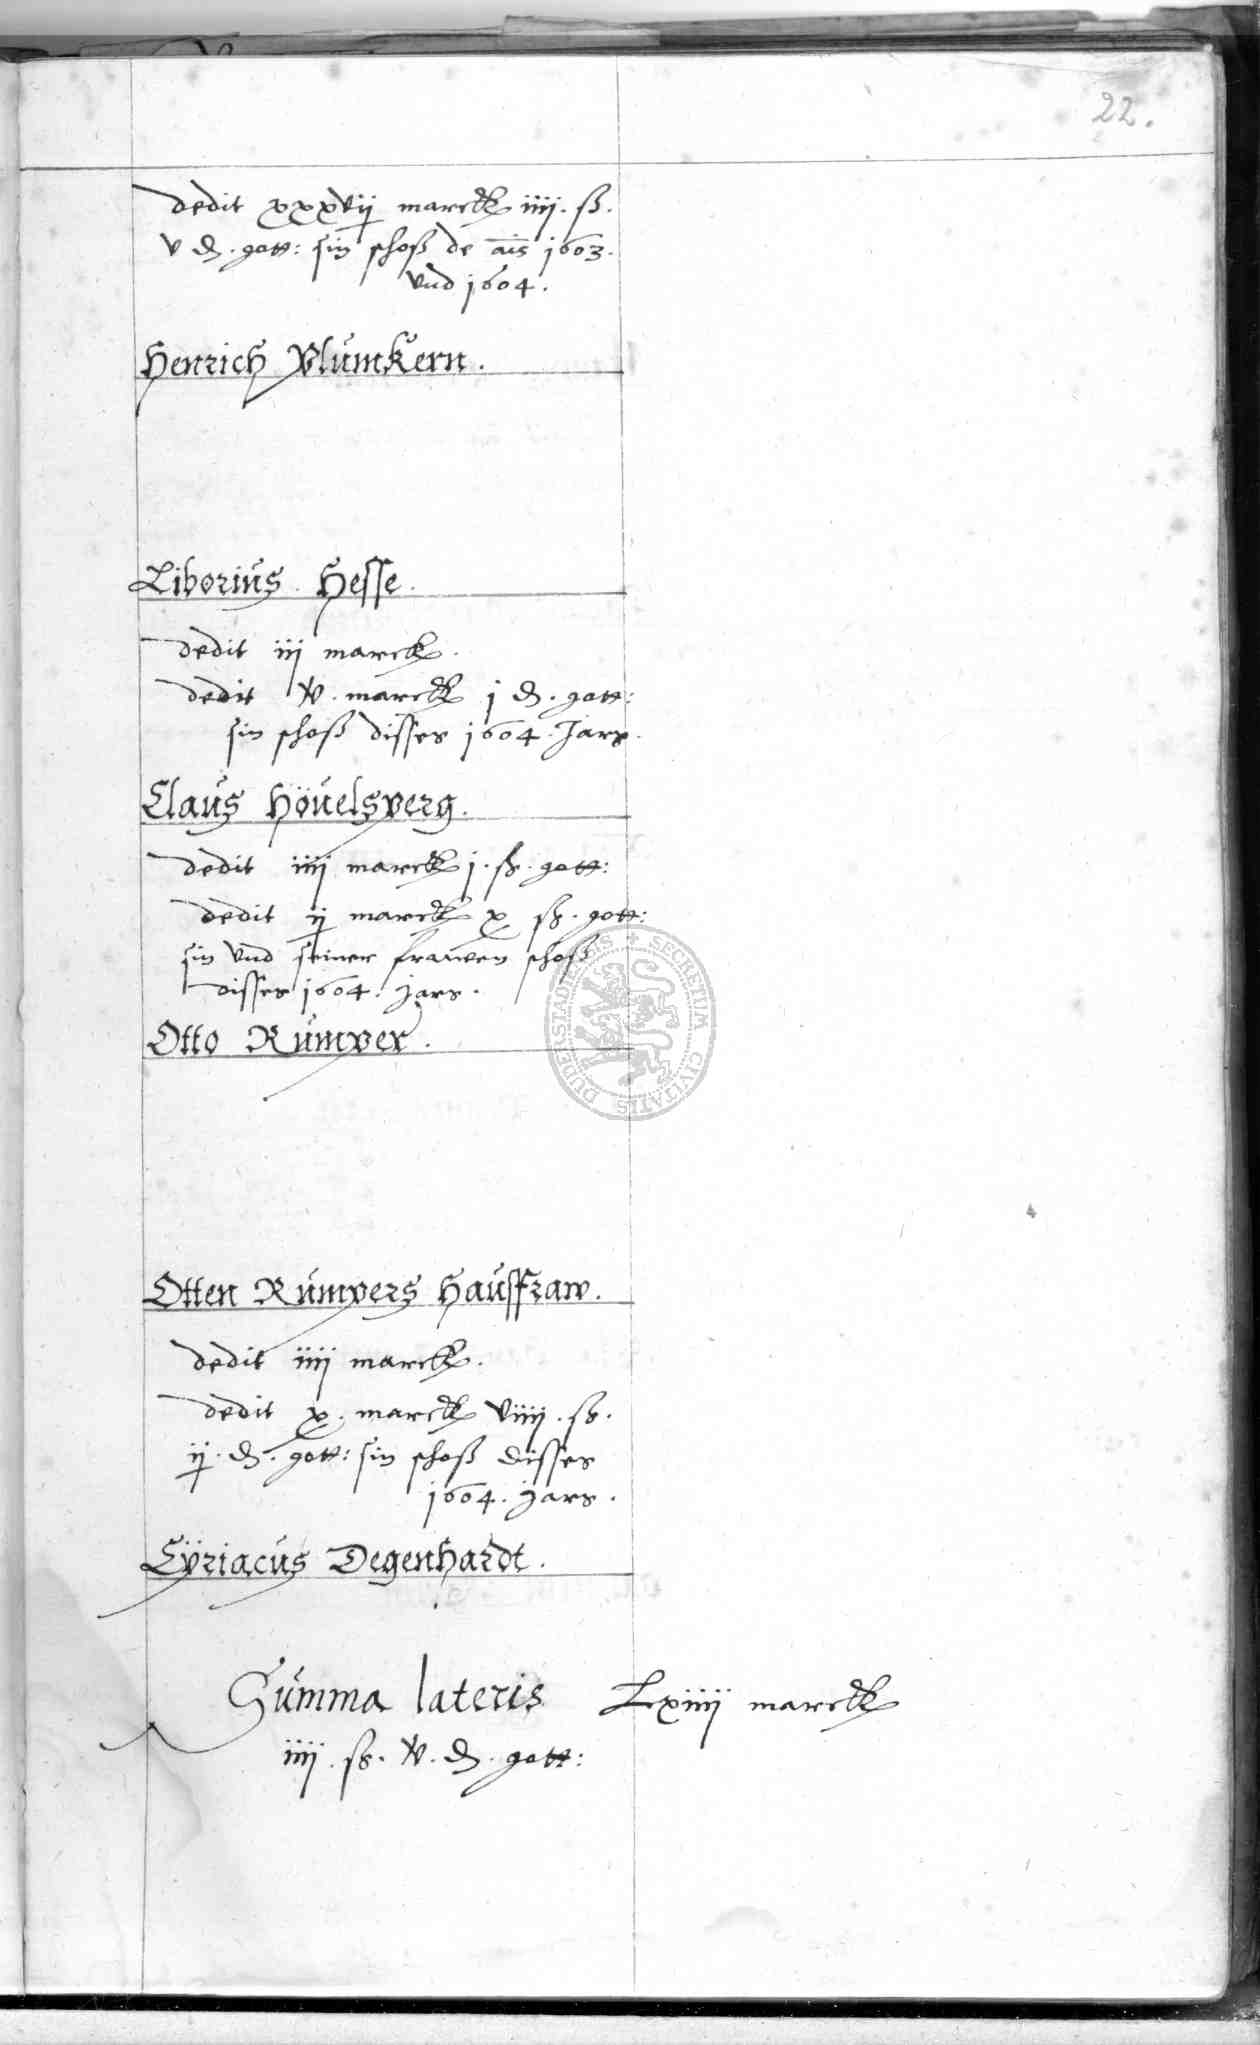 22.
dedit xxxvij marck iiij. ß.
v ₰. gott: sin schoß de a͞is 1603.
vnd 1604.
Henrich Blumkern.
Liborius Hesse.
dedit iij marck.
dedit v. marck j ₰. gott:
sin schoß disses 1604. Jars.
Claus Höuelsberg.
dedit iiij marck j. ß. gott:
dedit ij marck x ß. gott:
sin vnd seiner frawen schoß
disses 1604. jars.
Otto Rumper.
Otten Rumpers Haussfraw.
dedit iiij marck.
dedit x. marck viiij. ß.
ij. ₰. gott: sin schoß disses
1604. jars.
Cÿriacus Degenhardt.
Summa lateris Lxiiij marck
iiij. ß. v. ₰. gott:
SECRETUM CIVITATIS DUDERSTADIENSIS